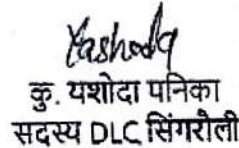 Yashoda
कु. यशोदा पनिका
सदस्य DLC सिंगरौली